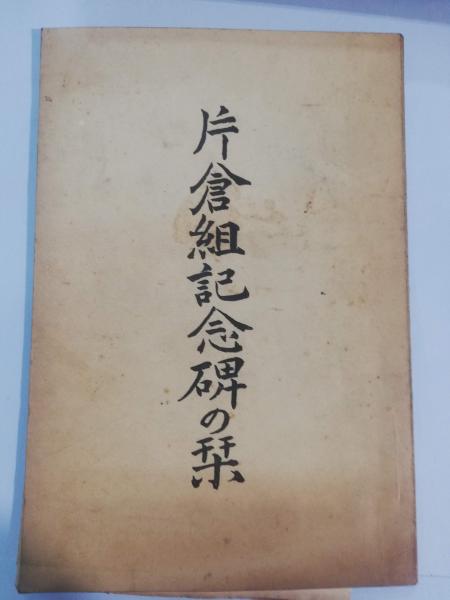 片倉組記念碑の栞